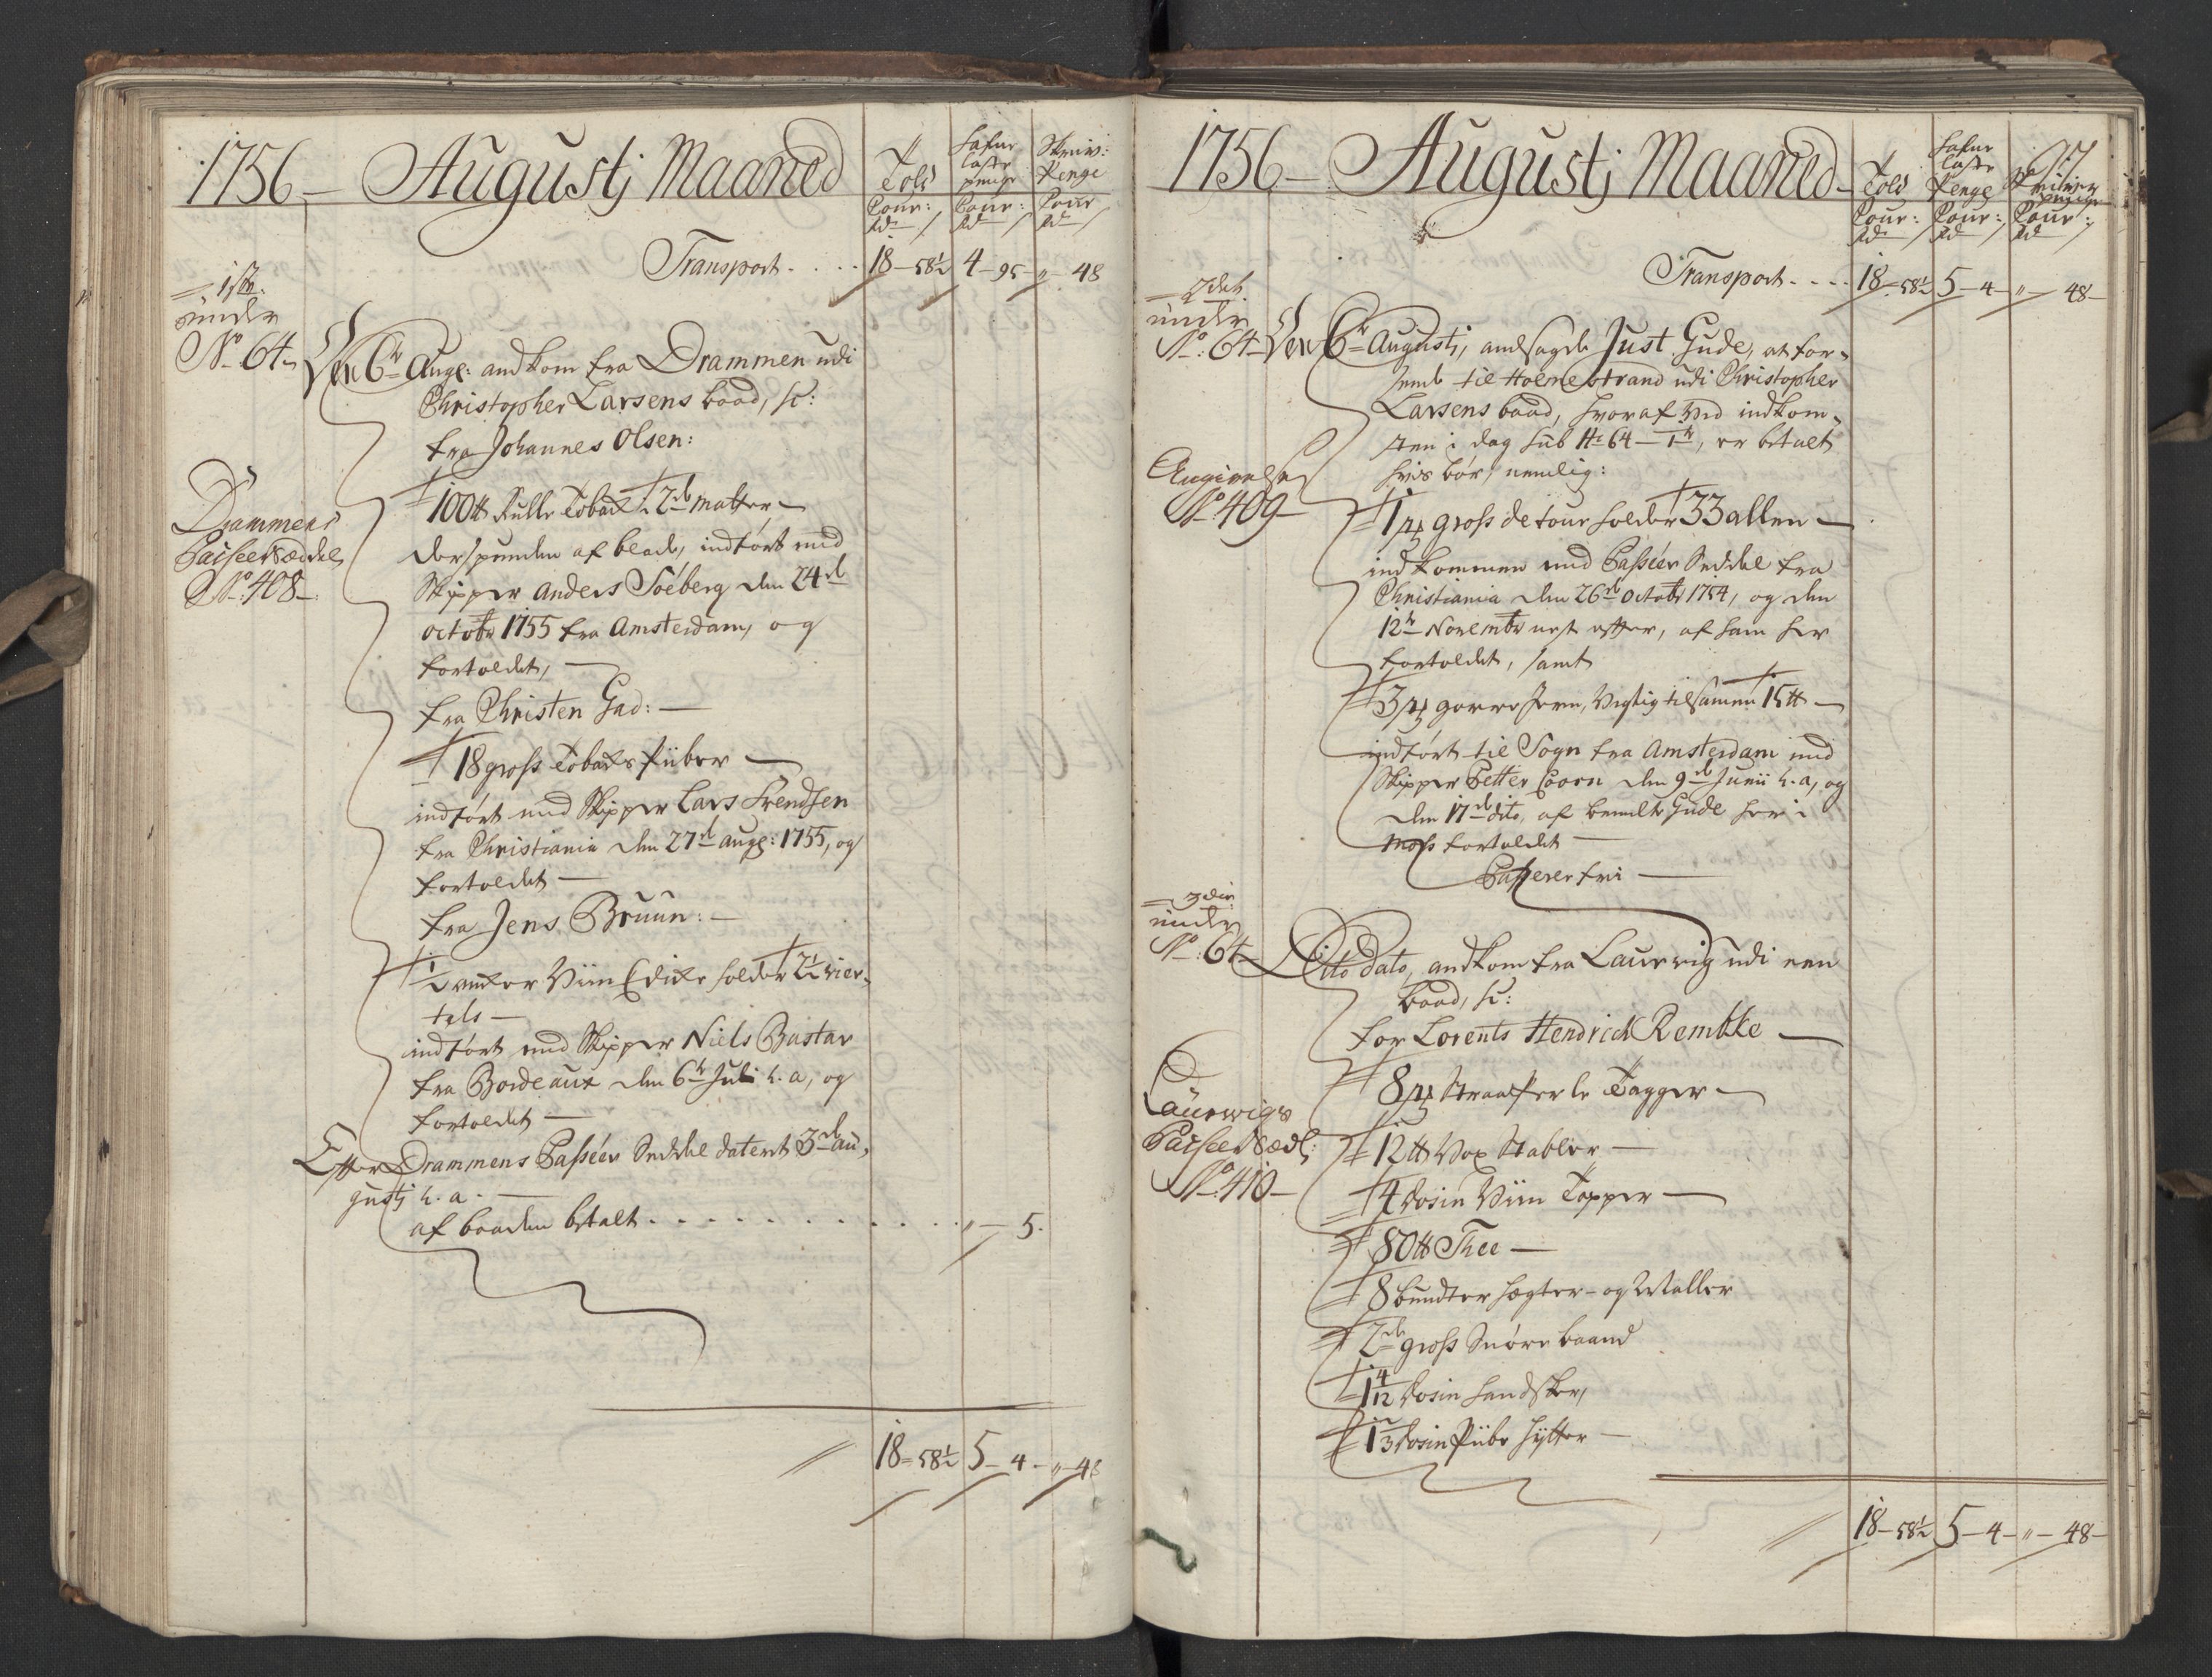 1756 – Augustj Maaned
Told
Cour:
Rd
Hafne
laste
penge
Cour:
Rd
Skriv:
Penge
Cour
Rd
Transport . . . . 18 – 58½ 4 – 95 – " – 48
1ste
under
No 64
Den 6te Aug: andkom fra Drammen udi
Christopher Larsens baad, sc:
fra Johannes Olsen:
Drammens
Passeer Sæddel
No 408
100 ℔ Rulle Toback i 2de Matter –
der spunden af blade, indført med
Skipper Anders Söeberg den 24de
octobr 1755 fra Amsterdam, og
fortoldet, –
fra Christen Gad: –
18 gross Tobaks Piiber –
indført med Skipper Lars Svendsen
fra Christiania den 27de aug: 1755, og
fortoldet –
fra Jens Bruun: –
½ anker Viin Edicke holder 2½ vier-
tels –
indført med Skipper Niels Bastar
fra Bordeaux den 6te Juli h. a, og
fortoldet –
Efter Drammens Passeer Seddel datert 3de au-
gustj h. a. –
af baaden betalt . . . . . . . . . . . " – 5.
18 – 58½ 5 – 4 – " – 48
1756 – Augustj Maaned
97
Told
Cour:
Rd
Hafne
laste
Penge
Cour:
Rd
Skriver
penge
Cour:
Rd
Transport . . . . 18 – 58½ 5 – 4 – " – 48 –
2det
under
No 64
Den 6te Augustj, andsagde Just Gude, at for-
sende til Holmestrand udi Christopher
Larsens baad, hvoraf ved indkom-
sten i dag sub No 64 – 1te, er betalt
hvis bör, nemlig:
Angivelse
No 409
1 ps gross de tour holder 33 allen –
indkommen med Passeer Seddel fra
Christiania den 26de octobr 1754, og den
12te Novembr nest efter, af ham her
fortoldet, samt
3 ps gorre Jern, Vegtig tilsamen 15 ℔ –
indført til Sogn fra Amsterdam med
Skipper Petter Coorn den 9de Junii h. a, og
den 17de dito, af bemelte Gude her i
Moss fortoldet –
Passerer fri –
3die
under
No 64
Dito dato, andkom fra Laurvig udi een
baad, sc:
for Lorents Hendrich Rembke –
Laurvigs
Passeer Sædl:
No 410
8 ps Straa Perle Tagger –
12 ℔ Vox Stabler –
4 dosin Viin Topper –
80 ℔ Thee –
8 bundter hegter- og Maller
2de gross Snöre baand
1 4/12 dosin handsker,
1 1/3 dosin Piibe hytter –
18 – 58½ 5 – 4 – " – 48 –